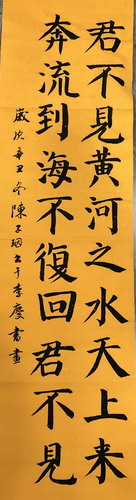 君不見黃河之水天上来
奔流到海不復回君不見
歲次辛丑冬陳子
書畫